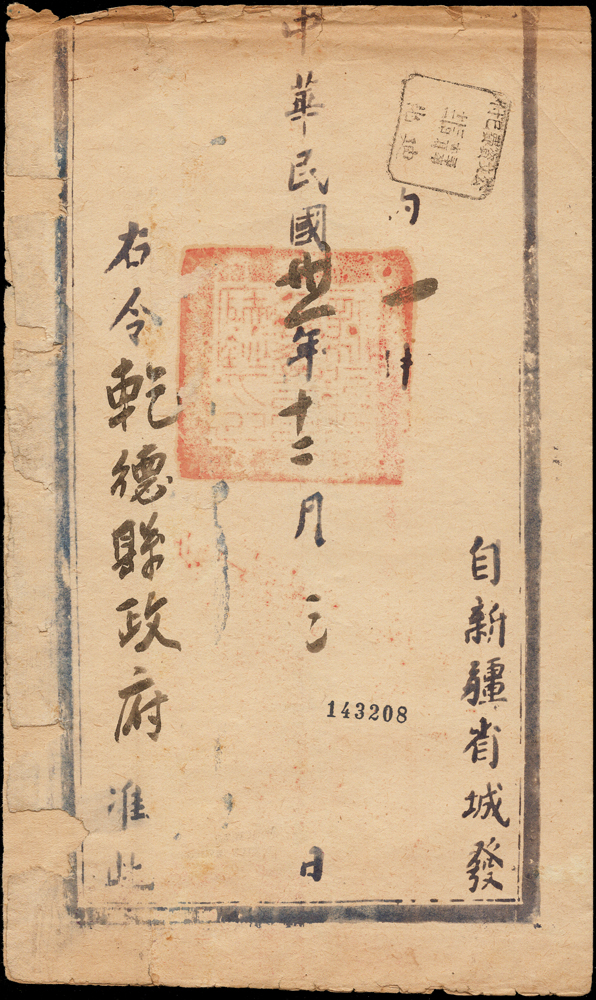 自新疆省城發
內一件
中華民國卅一年十二月三日
右令乾德縣政府准此
143208